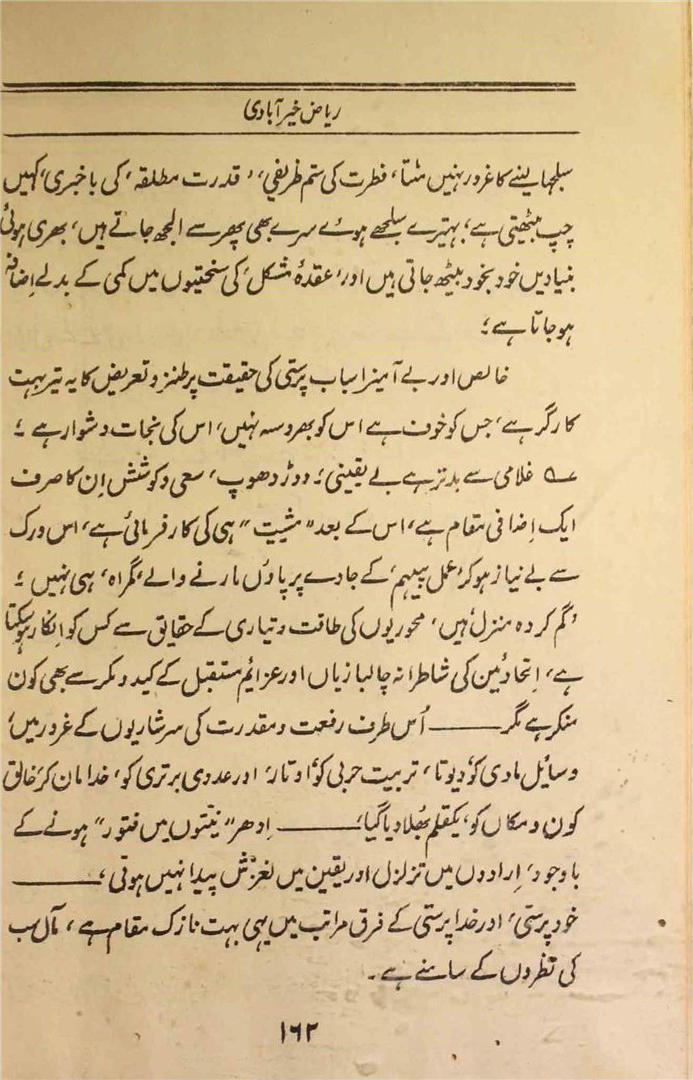 ریاض خیرآبادی
سلجھا لینے کا غرور نہیں مٹتا، فطرت کی ستم ظریفی، ' قدرت مطلقہ ' کی باخبری، کہیں
چپ بیٹھتی ہے؛ بہتیرے سلجھے ہوئے سرے بھی پھر سے الجھ جاتے ہیں، بھری ہوئی
بنیادیں خود بخود بیٹھ جاتی ہیں اور 'عقدۂ مشکل' کی سختیوں میں کمی کے بدلے اِضافہ
ہو جاتا ہے؛
خالص اور بے آمیز اسباب پرستی کی حقیقت پر طنز و تعریض کا یہ تیر بہت
کارگر ہے، جس کو خوف ہے اس کو بھروسہ نہیں، اس کی نجات دشوار ہے؛
؎ غلامی سے بدتر ہے بے یقینی؛ دوڑ دھوپ، سعی و کوشش اِن کا صرف
ایک اِضافی مقام ہے، اس کے بعد "مشیت" ہی کی کارفرمائی ہے، اس ورک
سے بے نیاز ہو کر 'عمل پیہم' کے جادے پر پاؤں مارنے والے 'گمراہ' ہی نہیں؛
'گم کردہ منزل' ہیں، محوریوں کی طاقت و تیاری کے حقایق سے کس کو اِنکار ہو سکتا
ہے، اِتحادئین کی شاطرانہ چالبازیاں اور عزایم مستقبل کے کید و مکر سے بھی کون
منکر ہے مگر ——— اُس طرف رفعت و مقدرت کی سرشاریوں کے غرور میں،
وسائل مادی کو 'دیوتا'، تربیت حربی کو 'اوتار' اور عددی برتری کو 'خدا مان کر' خالق
کون و مکاں کو، یکقلم بھلا دیا گیا، ——— اِدھر "نیتوں میں فتور" ہونے کے
باوجود، اِرادوں میں تزلزل اور یقین میں لغزش پیدا نہیں ہوتی، ———
خود پرستی، اور خدا پرستی کے فرق مراتب میں یہی بہت نازک مقام ہے، مآل سب
کی نظروں کے سامنے ہے۔
۱۶۲